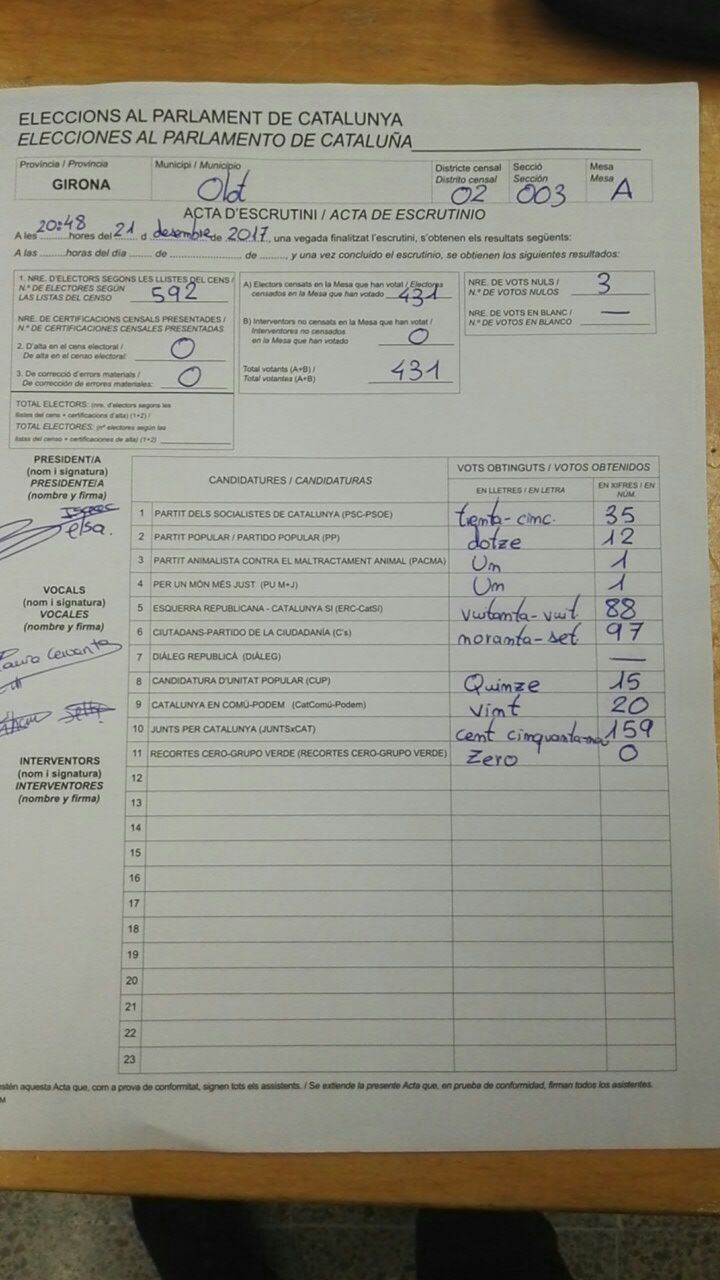 ELECCIONS AL PARLAMENT DE CATALUNYA
ELECCIONES AL PARLAMENTO DE CATALUÑA
Província / Provincia
GIRONA
Municipi / Municipio
Olot
Districte censal
Distrito censal
02
Secció
Sección
003
Mesa
Mesa
A
ACTA D'ESCRUTINI / ACTA DE ESCRUTINIO
A les 20:48 hores del 21 d desembre de 2017, una vegada finalitzat l'escrutini, s'obtenen els resultats següents:
A las ......... horas del día ....... de ......................... de .........., y una vez concluido el escrutinio, se obtienen los siguientes resultados:
1. NRE. D'ELECTORS SEGONS LES LLISTES DEL CENS /
N.º DE ELECTORES SEGÚN
LAS LISTAS DEL CENSO 592
NRE. DE CERTIFICACIONS CENSALS PRESENTADES /
N.º DE CERTIFICACIONES CENSALES PRESENTADAS
2. D'alta en el cens electoral /
De alta en el censo electoral: 0
3. De correcció d'errors materials /
De corrección de errores materiales: 0
TOTAL ELECTORS: (nre. d'electors segons les
llistes del cens + certificacions d'alta) (1+2) /
TOTAL ELECTORES: (nº electores según las
listas del censo + certificaciones de alta) (1+2)
A) Electors censats en la Mesa que han votat / Electores
censados en la Mesa que han votado 431
B) Interventors no censats en la Mesa que han votat /
Interventores no censados
en la Mesa que han votado 0
Total votants (A+B) /
Total votantes (A+B) 431
NRE. DE VOTS NULS /
N.º DE VOTOS NULOS 3
NRE. DE VOTS EN BLANC /
N.º DE VOTOS EN BLANCO —
PRESIDENT/A
(nom i signatura)
PRESIDENTE/A
(nombre y firma)
elsa.
VOCALS
(nom i signatura)
VOCALES
(nombre y firma)
INTERVENTORS
(nom i signatura)
INTERVENTORES
(nombre y firma)
CANDIDATURES / CANDIDATURAS
VOTS OBTINGUTS / VOTOS OBTENIDOS
EN LLETRES / EN LETRA
EN XIFRES / EN NÚM.
1 PARTIT DELS SOCIALISTES DE CATALUNYA (PSC-PSOE) trenta-cinc. 35
2 PARTIT POPULAR / PARTIDO POPULAR (PP) dotze 12
3 PARTIT ANIMALISTA CONTRA EL MALTRACTAMENT ANIMAL (PACMA) Un 1
4 PER UN MÓN MÉS JUST (PU M+J) Un 1
5 ESQUERRA REPUBLICANA - CATALUNYA SI (ERC-CatSí) vuitanta-vuit 88
6 CIUTADANS-PARTIDO DE LA CIUDADANÍA (C's) noranta-set 97
7 DIÀLEG REPUBLICÀ (DIÀLEG) —
8 CANDIDATURA D'UNITAT POPULAR (CUP) Quinze 15
9 CATALUNYA EN COMÚ-PODEM (CatComú-Podem) vint 20
10 JUNTS PER CATALUNYA (JUNTSxCAT) cent cinquanta-nou 159
11 RECORTES CERO-GRUPO VERDE (RECORTES CERO-GRUPO VERDE) Zero 0
12
13
14
15
16
17
18
19
20
21
22
23
estén aquesta Acta que, com a prova de conformitat, signen tots els assistents. / Se extiende la presente Acta que, en prueba de conformidad, firman todos los asistentes.